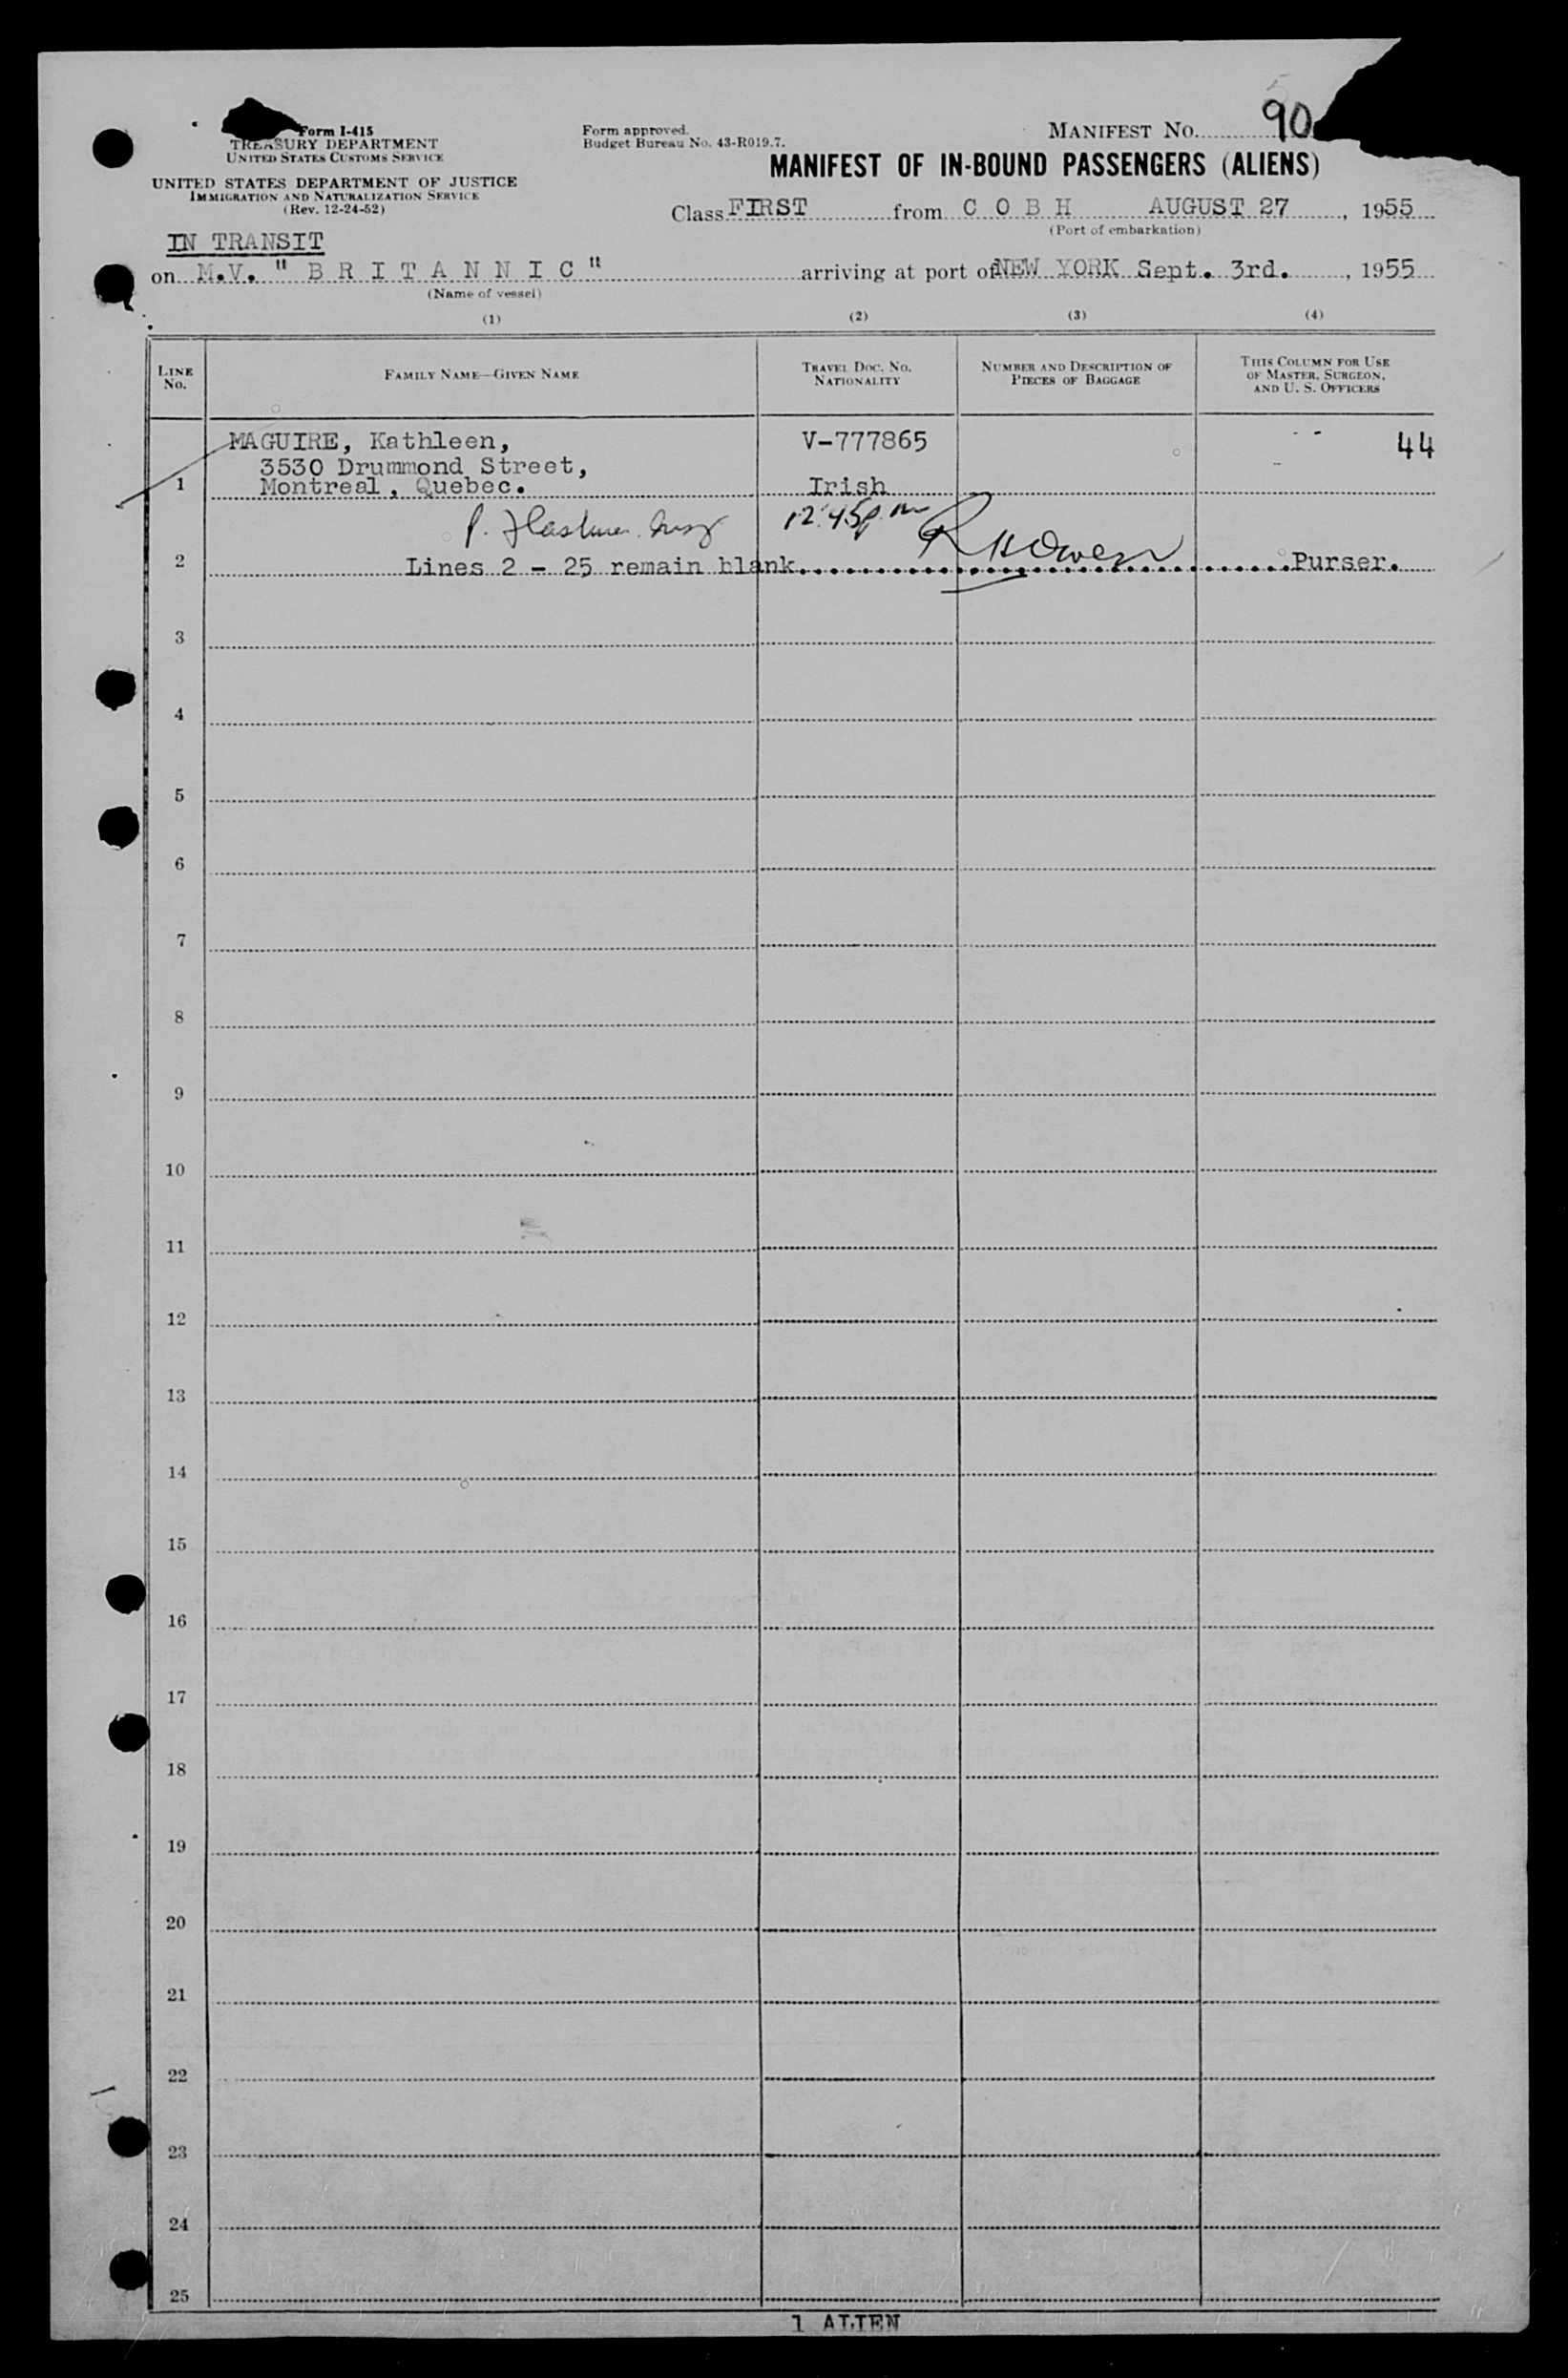 Form I-415
TREASURY DEPARTMENT
UNITED STATES CUSTOMS SERVICE
UNITED STATES DEPARTMENT OF JUSTICE
IMMIGRATION AND NATURALIZATION SERVICE
(Rev. 12-24-52)
Form approved.
Budget Bureau No. 43-R019.7.
MANIFEST NO. 90
MANIFEST OF IN-BOUND PASSENGERS (ALIENS)
Class FIRST from C O B H AUGUST 27, 1955
(Port of embarkation)
IN TRANSIT
on M.V. "B R I T A N N I C" arriving at port of NEW YORK Sept. 3rd., 1955
(Name of vessel)
(1) (2) (3) (4)
LINE No.
FAMILY NAME—GIVEN NAME
TRAVEL DOC. NO. NATIONALITY
NUMBER AND DESCRIPTION OF PIECES OF BAGGAGE
THIS COLUMN FOR USE OF MASTER, SURGEON, AND U. S. OFFICERS
MAGUIRE, Kathleen, V-777865 44
3530 Drummond Street,
1 Montreal, Quebec. Irish
P. 12:45 pm R H Owen
2 Lines 2 - 25 remain blank. Purser.
3
4
5
6
7
8
9
10
11
12
13
14
15
16
17
18
19
20
21
22
23
24
25
1 ALIEN